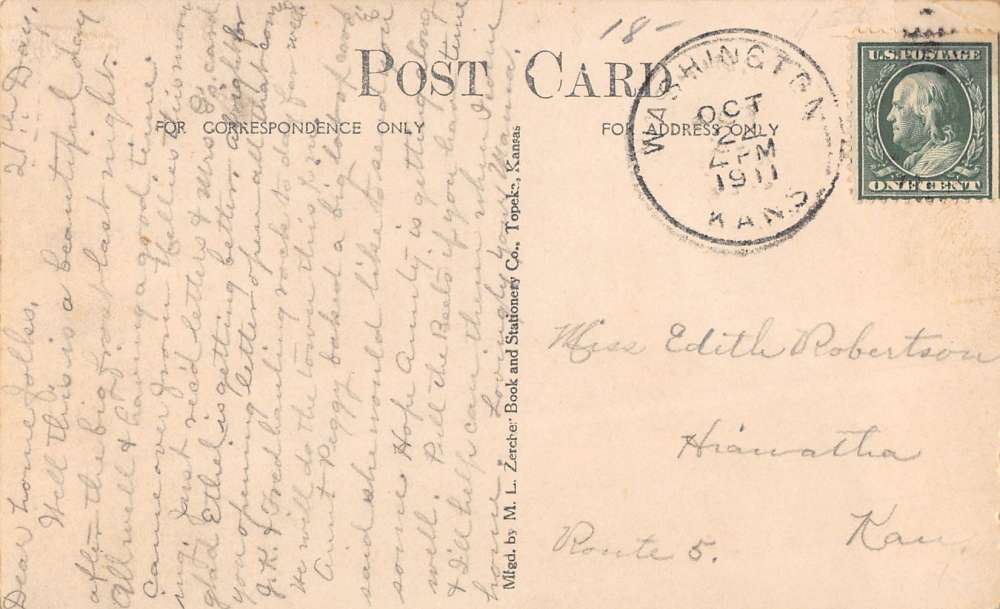 18-
POST CARD
FOR CORRESPONDENCE ONLY
FOR ADDRESS ONLY
WASHINGTON
OCT
24
PM
1911
KANS.
U.S. POSTAGE
ONE CENT
2nd Day,
Dear home folks,
Well this is a beautiful day
after the big frost last night.
All well & having a good time.
Came over from Nellies this morn
ing. Just rec'd letters & Mrs. card
glad Ethel is getting better, all right for
you opening letter open all that come
G.K. & Fred hauling rock to day for well.
We will do the town this
Aunt Peggy baked a big loaf
said she would like to send you
some Hope Aunty is getting along
well. Pull the Beets if you have time
& I'll help can them when I come
home. Lovingly your Mama,
Mfgd. by M. L. Zercher Book and Stationery Co., Topeka, Kansas
Miss Edith Robertson
Hiawatha
Route 5. Kan.